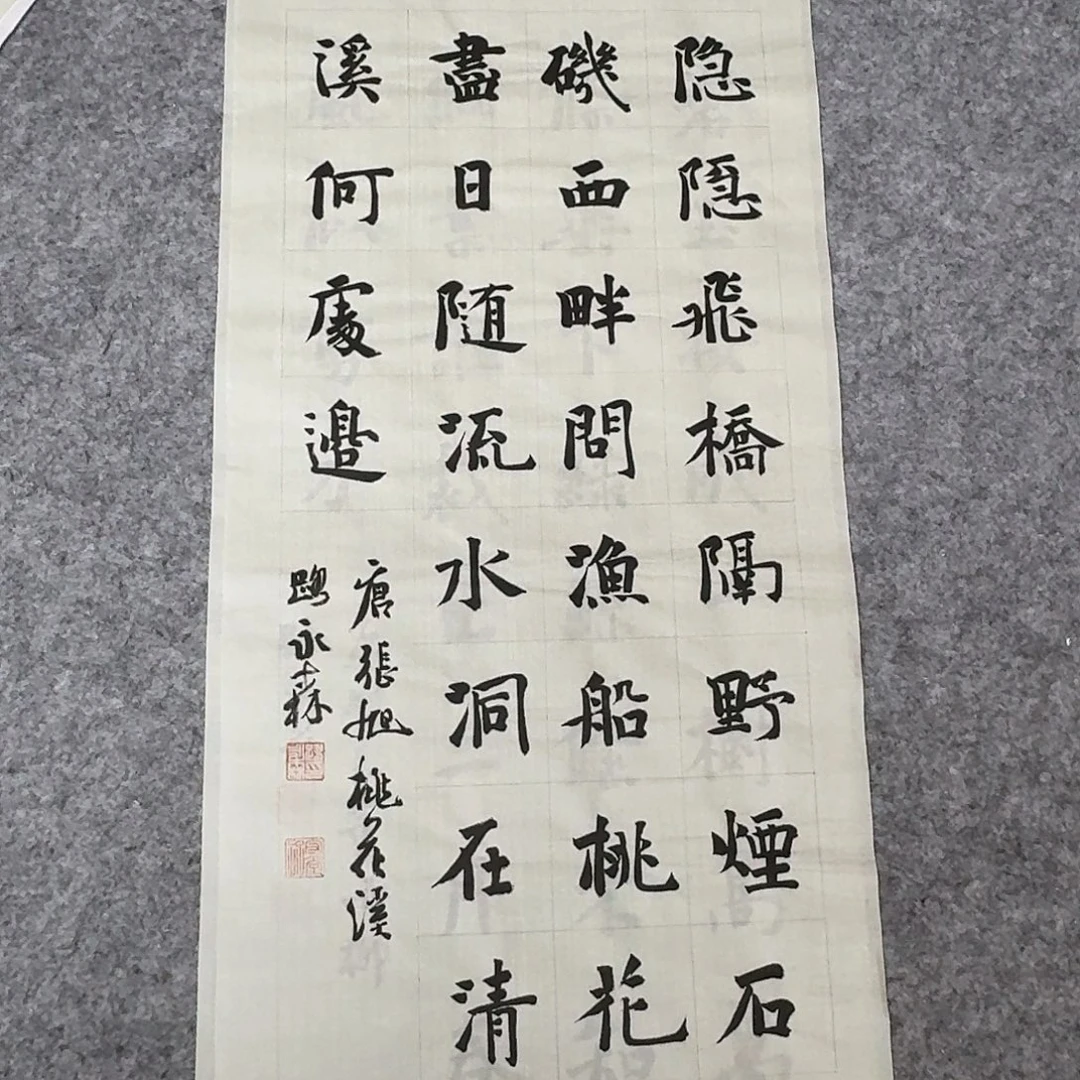 隐隐飛橋隔野煙石
磯西畔問漁船桃花
盡日随流水洞在清
溪何處邊
唐張旭桃花溪
路永森